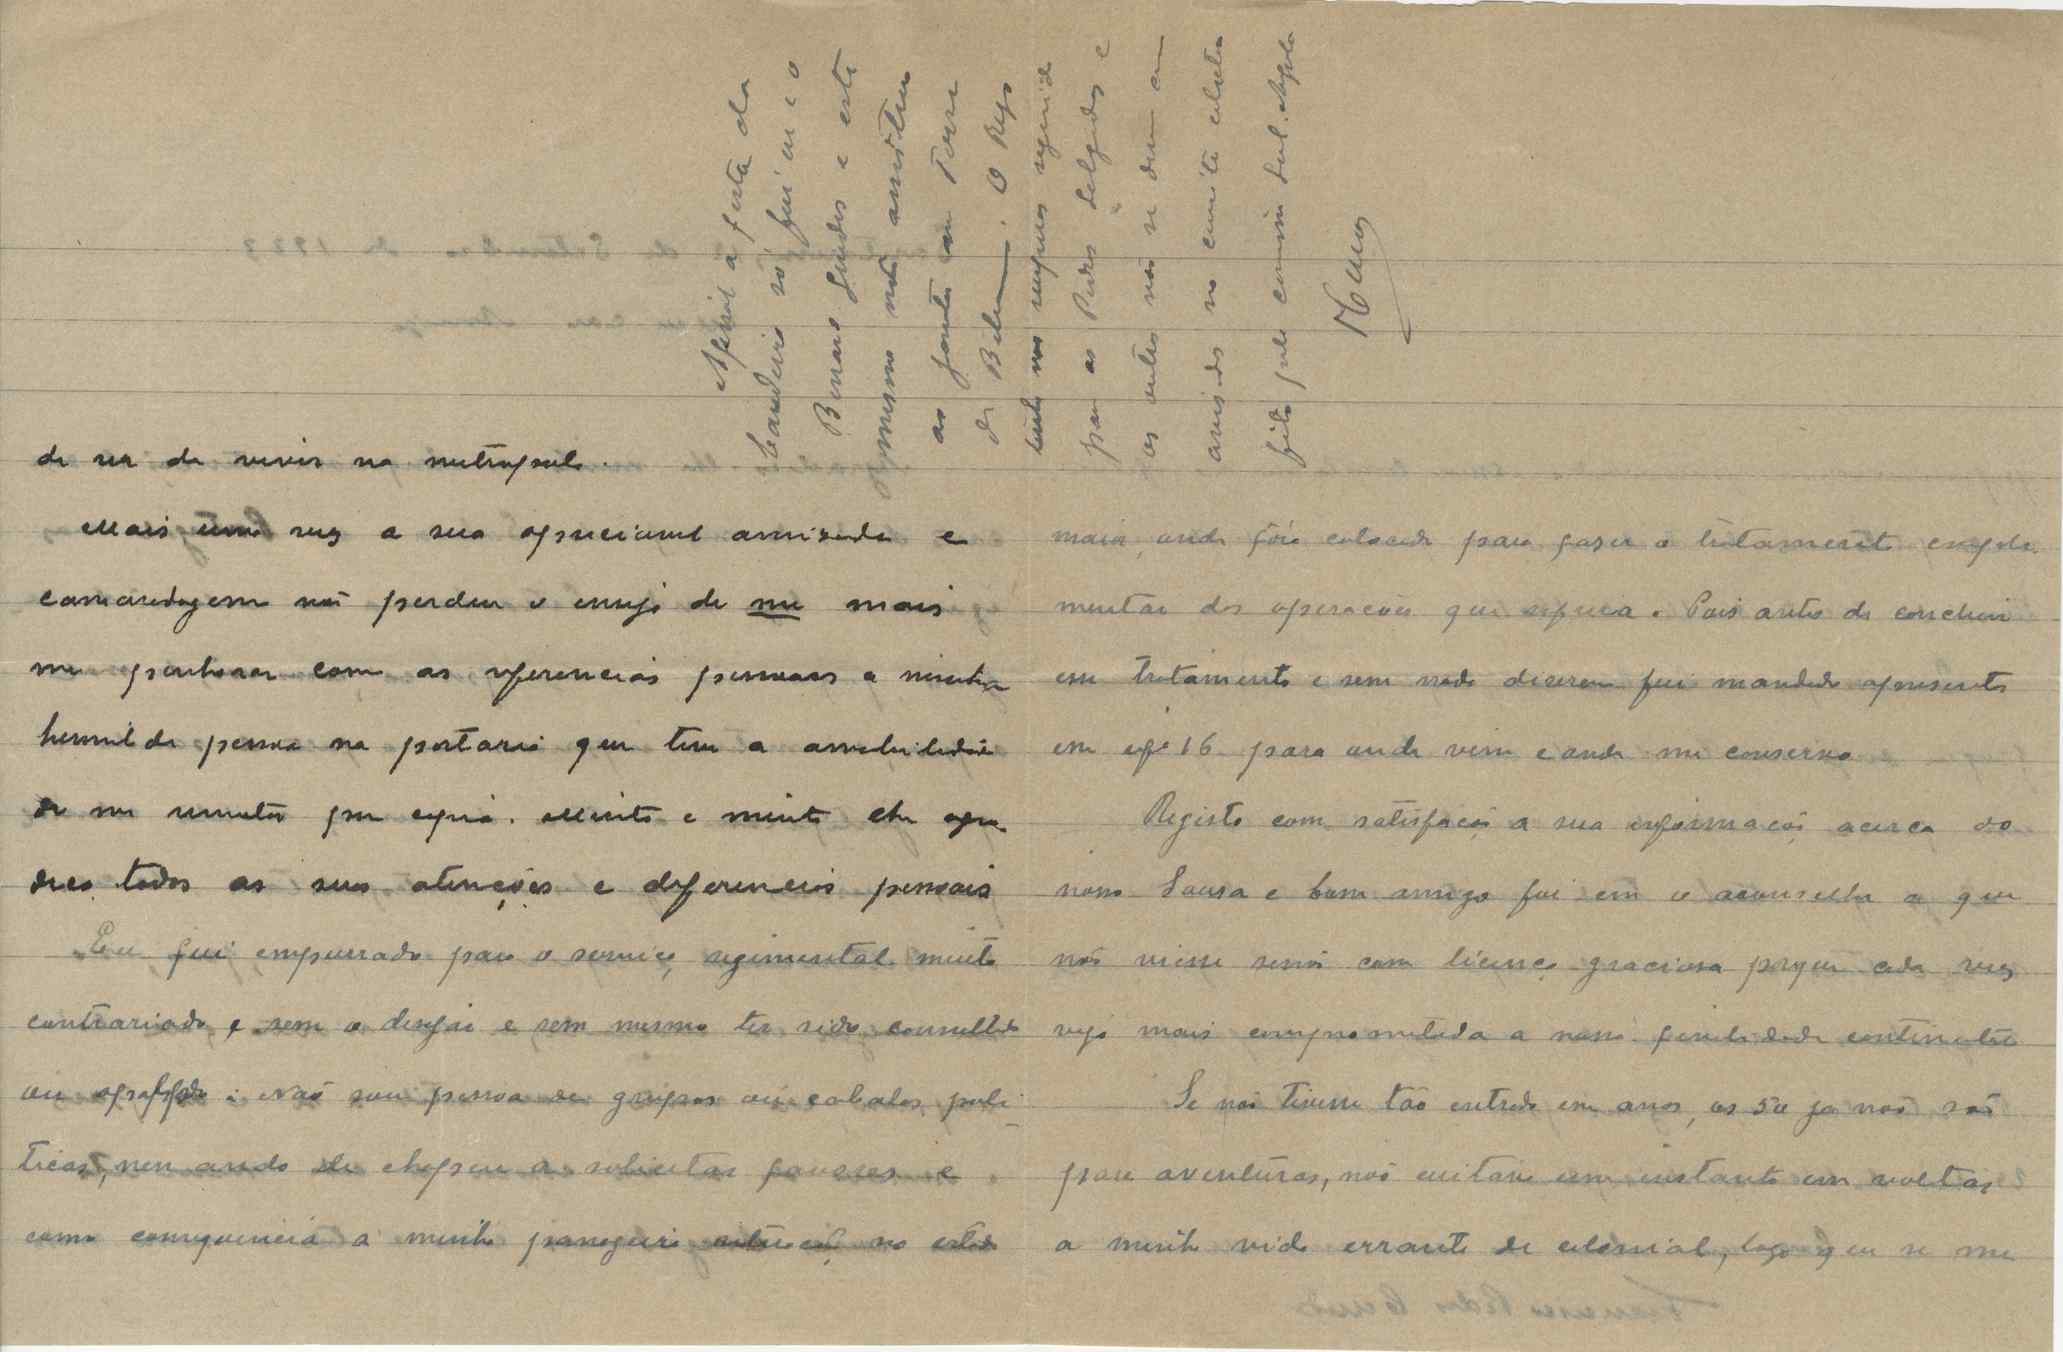 de ser de vivir na metropole.
Mais uma vez a sua apreciavel amisade e
camaradagem não perdeu o ensejo de me mais
me penhorar com as referencias pessoaes a minha
humilde pessoa na portaria que teve a amabilidade
de me remeter por copia. Muito e muito lhe agra
deço todas as suas atenções e deferencias pessoais
Eu fui empurrado para o serviço regimental muito
contrariado e sem o desejar e sem mesmo ter sido consultado
ou Não sou pessoa de grupos ou cabalas poli
ticas, nem ando de chapeu a solicitar favores e
como consequencia a minha passageira situação no estado
maior, onde fôra colocado para fazer o tratamento
mentar das operações que sofrera. Pois antes de concluir
esse tratamento e sem nada dizerem fui mandado apresentar
em 16 para onde vim e onde me conservo
Registo com satisfação a sua informação acerca do
nosso Sousa e bom amigo fui em o aconselhar a que
não viesse senão com licença graciosa porque cada vez
vejo mais comprometida a nossa continental
Se não tivesse tão entrado em anos, os 50 ja não são
para aventuras, não exitaria um instante em voltar
a minha vida errante de colonial, logo que se me
Apenas a festa da
Candeeiro só fui eu e o
Bernardo Guedes e este
mesmo não assistiu
ao jantar em Torre
de Belem. O Rego
tinha nos
para as Pedras Salgadas e
os outros não se deram em
avisados no convite coletivo
feito pela comissão Sul. Angola